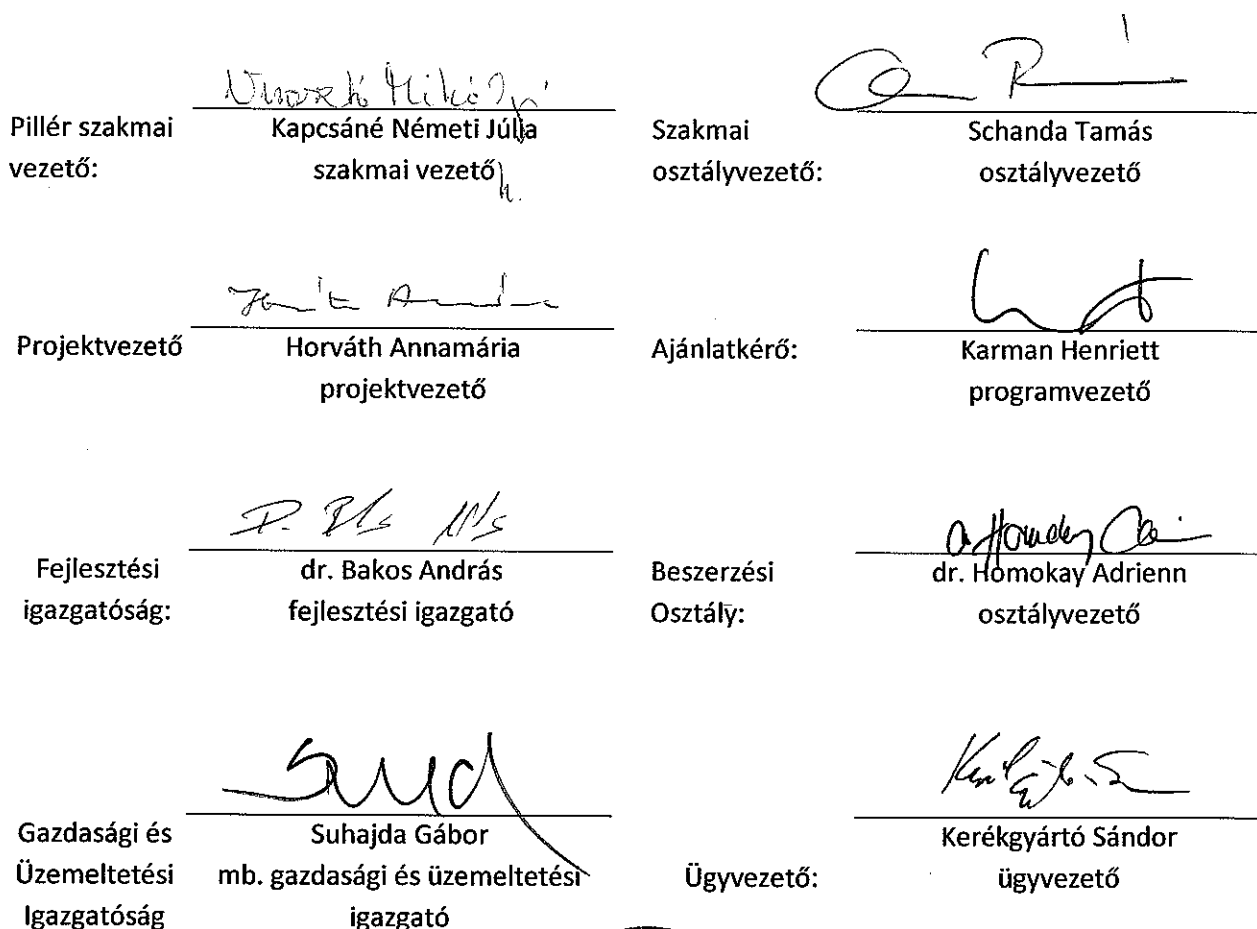 Pillér szakmai vezető:
Kapcsáné Németi Júlia
szakmai vezető
h.
Szakmai osztályvezető:
Schanda Tamás
osztályvezető
Projektvezető
Horváth Annamária
projektvezető
Ajánlatkérő:
Karman Henriett
programvezető
Fejlesztési
igazgatóság:
dr. Bakos András
fejlesztési igazgató
Beszerzési
Osztály:
dr. Homokay Adrienn
osztályvezető
Gazdasági és
Üzemeltetési
Igazgatóság
Suhajda Gábor
mb. gazdasági és üzemeltetési
igazgató
Ügyvezető:
Kerékgyártó Sándor
ügyvezető